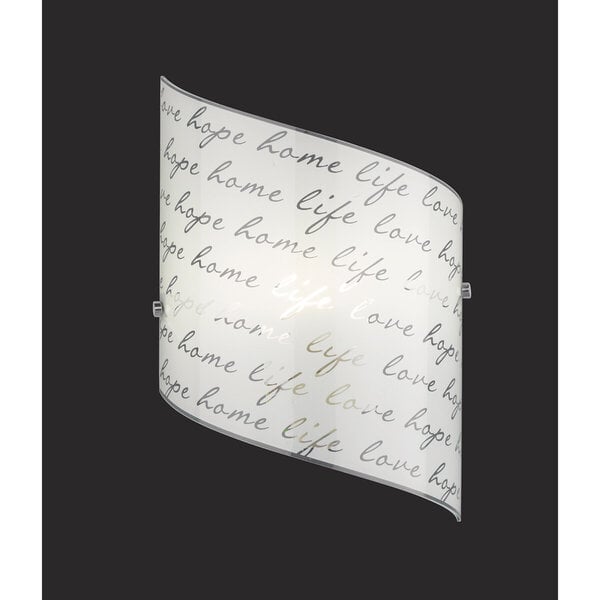 love hope home life love
hope home life love hope
hope home life love hope
hope home life love hope
hope home life love hope
hope home life love hope
hope home life love hope